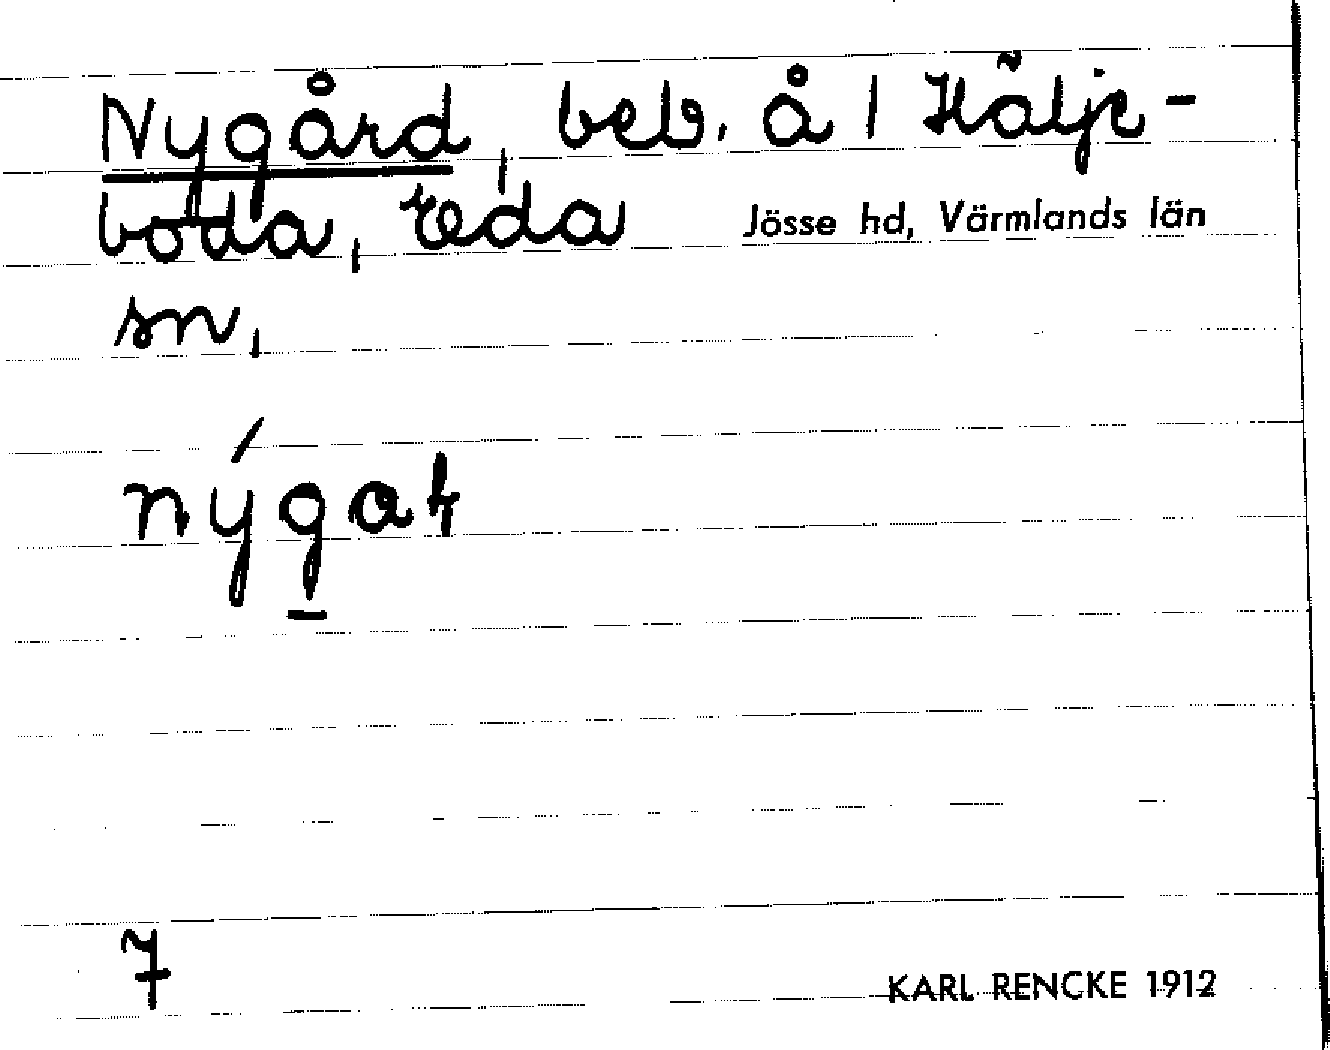 Nygård, beb. å 1 Hälje-
boda, Eda Jösse hd, Värmlands län
sn,
nýgat
7
KARL RENCKE 1912